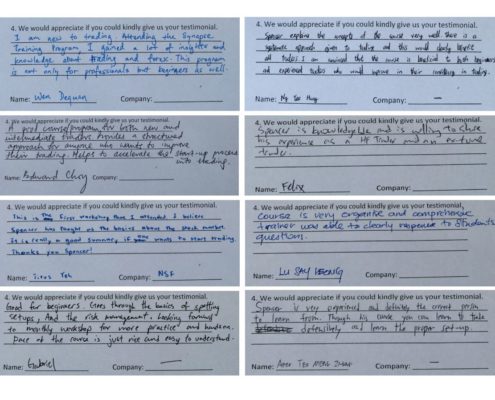 4. We would appreciate if you could kindly give us your testimonial.
I am new to trading. Attending the Synapse
Training Program, I gained a lot of insights and
knowledge about trading and forex. This program
is not only for professionals but beginners as well.
Name: Wen Dequan Company:
4. We would appreciate if you could kindly give us your testimonial.
A good course/program for both new and
intermediate traders. Provides a structured
approach for anyone who wants to improve
their trading. Helps to accelerate the start-up process
into trading.
Name: Edward Choy Company:
4. We would appreciate if you could kindly give us your testimonial.
This is the first workshop that I attended. I believe
Spencer has taught us the basics about the stock market.
It is really a good seminar, if one wants to start trading.
Thanks you Spencer!
Name: Titus Yeh Company: NSF
4. We would appreciate if you could kindly give us your testimonial.
Good for beginners. Goes through the basics of spotting
setups, And the risk management. Looking forward
to monthly workshop for more practice and hands on.
Pace of the course is just nice and easy to understand.
Name: Gabriel Company: —
4. We would appreciate if you could kindly give us your testimonial.
Spencer explains the concepts of the course very well. There is a
systematic approach given to trading and this would clearly benefit
all traders. I am convinced that the course is beneficial to both beginners
and experienced traders who would improve in their consistency in trading.
Name: Company: —
4. We would appreciate if you could kindly give us your testimonial.
Spencer is knowledgeable and is willing to share
his experience as a HF Trader and an
trader.
Name: Felix Company:
4. We would appreciate if you could kindly give us your testimonial.
course is very organise and comprehensive
trainer was able to clearly response to students
questions.
Name: LU SAY LEONG Company: —
4. We would appreciate if you could kindly give us your testimonial.
Spencer is very experienced and definitely the correct person
to learn from. Through his course you can learn to take
defensively and learn the proper set-up.
Name: Company: —